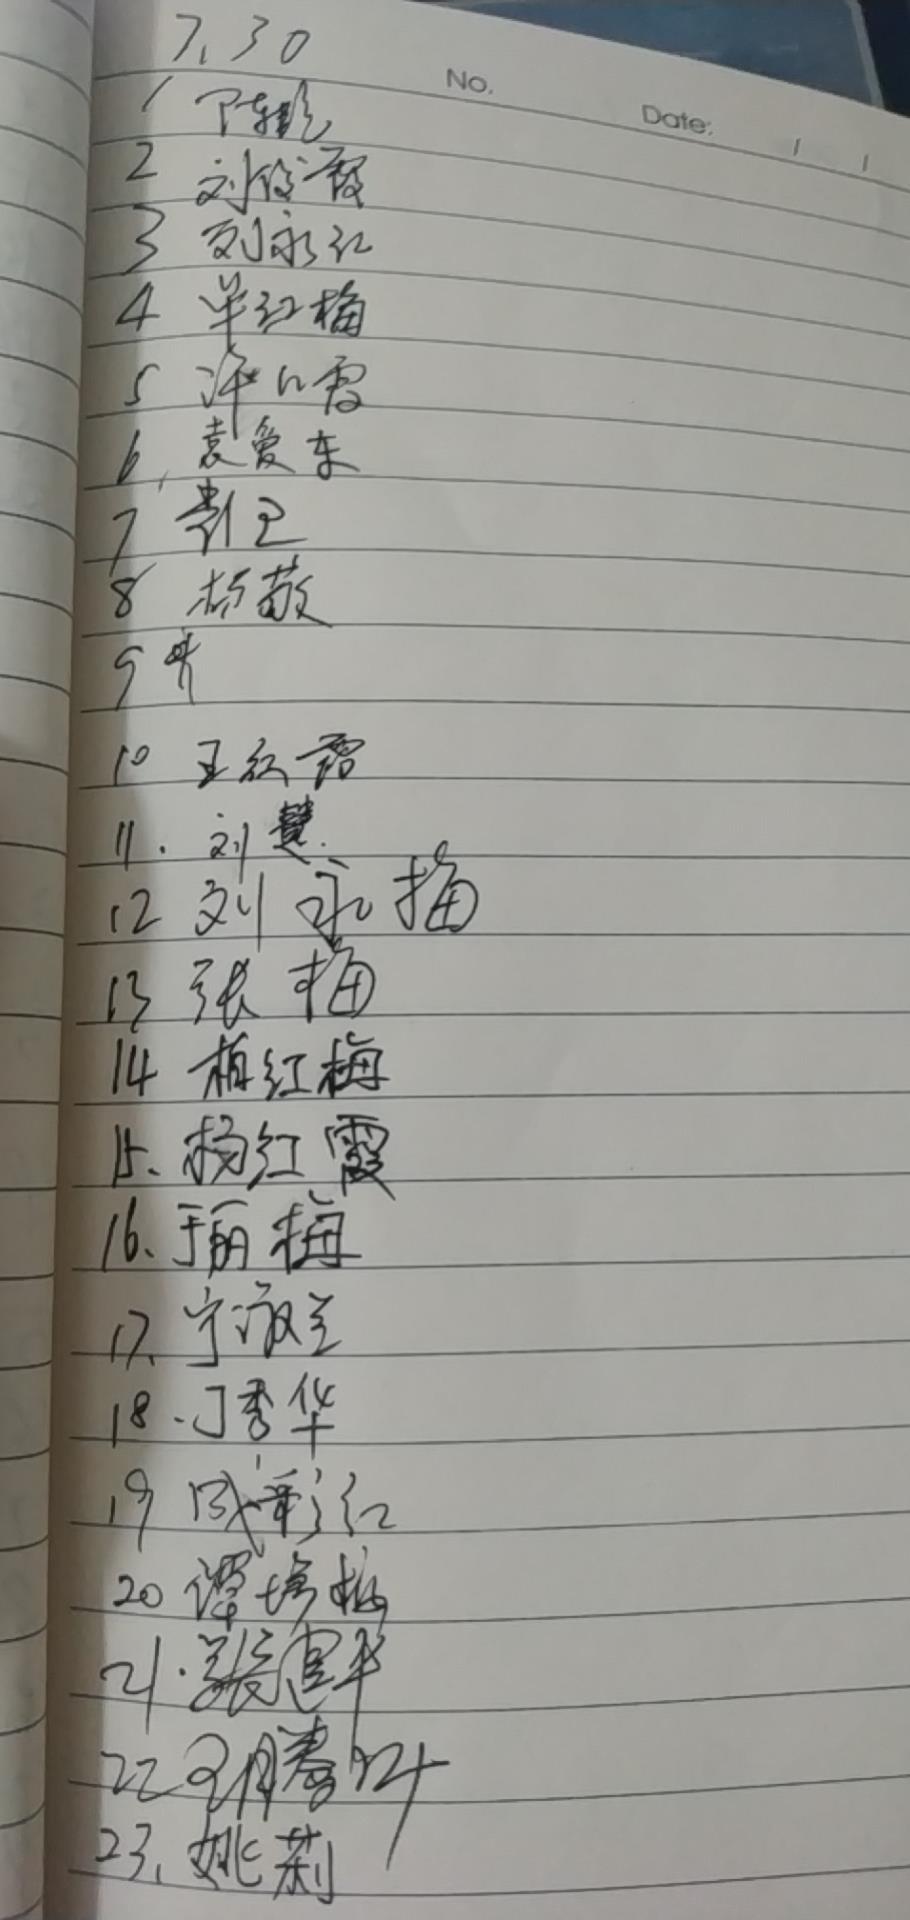 7.30
No.
Date: / /
1 陈艳
2 刘俊霞
3 刘永红
4 单红梅
5 许江霞
6. 袁爱东
7 卫
8 杨敬
9
10 王红霞
11. 刘慧
12 刘永梅
13 张梅
14 柏红梅
15. 杨红霞
16. 于丽梅
17. 宁淑兰
18. 丁秀华
19 成彩红
20 谭培梅
21. 张建华
22 王腾
23. 姚莉